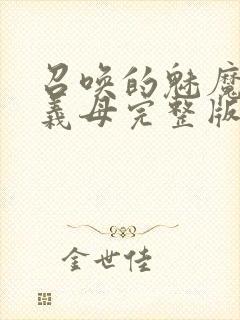 召唤的魅魔
义母完整版
金世佳